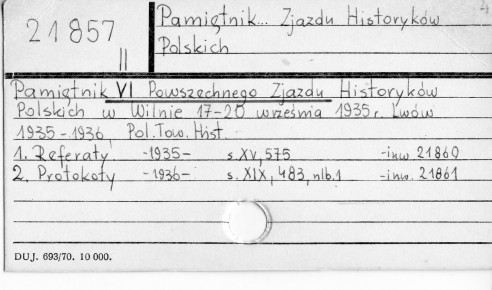 Pamiętnik... Zjazdu Historyków
21857
II
Polskich
Pamiętnik VI Powszechnego Zjazdu Historyków
Polskich w Wilnie 17-20 września 1935 r. Lwów
1935-1936, Pol. Tow. Hist.
1. Referaty -1935- s. XV, 575 -inw 21860
2. Protokoły -1936- s. XIX, 483, nlb. 1 -inw. 21861
DUJ. 693/70. 10 000.